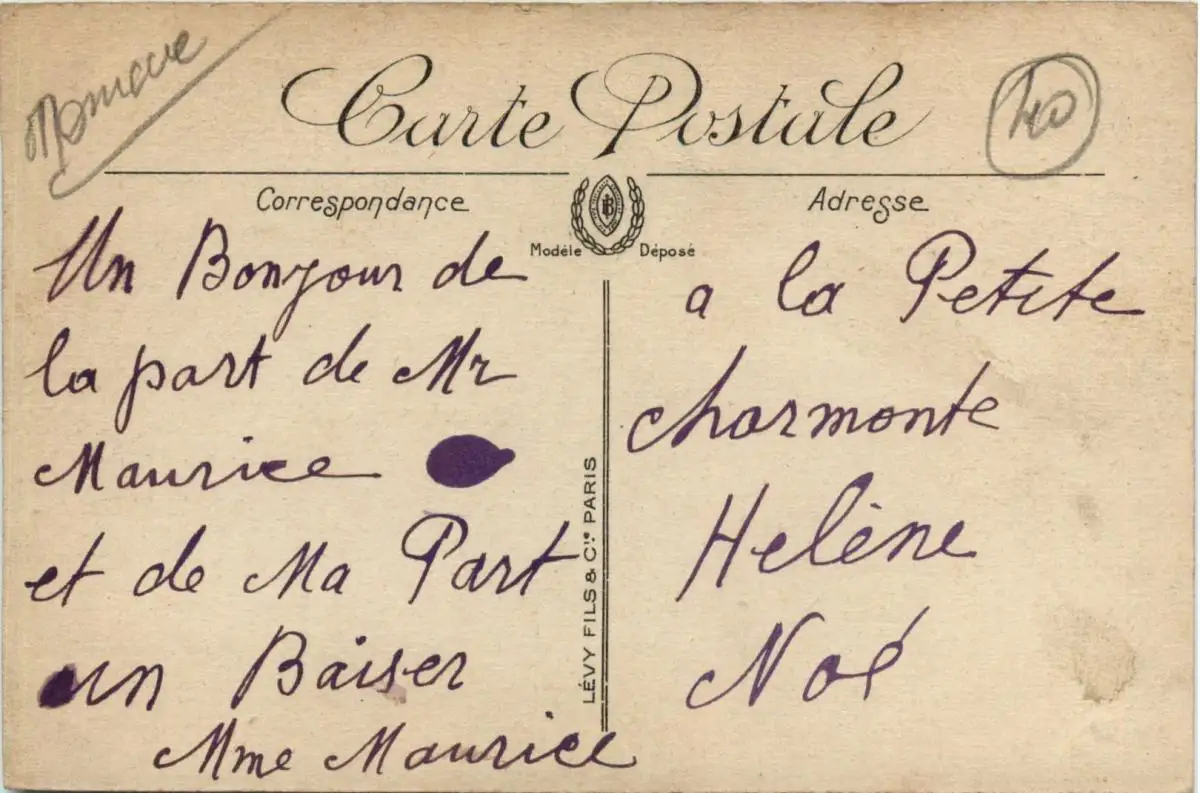 Carte Postale
40
Correspondance
Adresse
Modèle Déposé
Un Bonjour de
la part de Mr
Maurice
et de Ma Part
un Baiser
Mme Maurice
LÉVY FILS & Cie PARIS
a la Petite
charmante
Helène
Noé